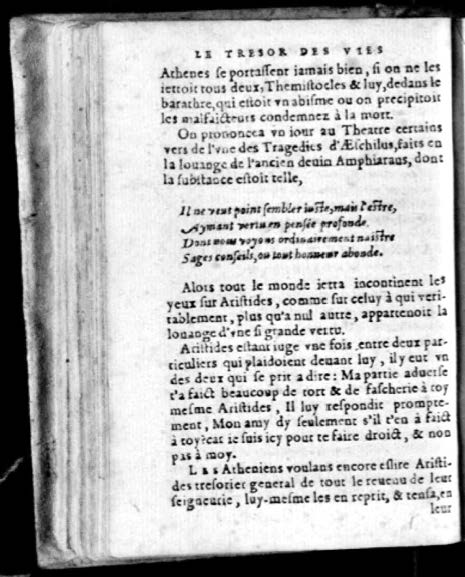 LE TRESOR DES VIES
Athenes se portassent iamais bien, si on ne les
iettoit tous deux, Themistocles & luy, dedans le
barathre, qui estoit vn abisme ou on precipitoit
les malfaicteurs condemnez à la mort.
On prononcea vn iour au Theatre certains
vers de l'vne des Tragedies d'Æschilus, faits en
la louange de l'ancien deuin Amphiaraus, dont
la substance estoit telle,
Il ne veut point sembler iuste, mais l'estre,
Aymant vertu en pensée profonde.
Dont nous voyons ordinairement naistre
Sages conseils, ou tout honneur abonde.
Alors tout le monde ietta incontinent les
yeux sur Aristides, comme sur celuy à qui veri-
tablement, plus qu'a nul autre, appartenoit la
louange d'vne si grande vertu.
Aristides estant iuge vne fois entre deux par-
ticuliers qui plaidoient deuant luy, il y eut vn
des deux qui se prit a dire: Ma partie aduerse
t'a faict beaucoup de tort & de fascherie à toy
mesme Aristides, Il luy respondit prompte-
ment, Mon amy dy seulement s'il t'en à faict
à toy? car ie suis icy pour te faire droict, & non
pas à moy.
Les Atheniens voulans encore eslire Aristi-
des tresorier general de tout le reuenu de leur
seigneurie, luy-mesme les en reprit, & tensa, en
leur